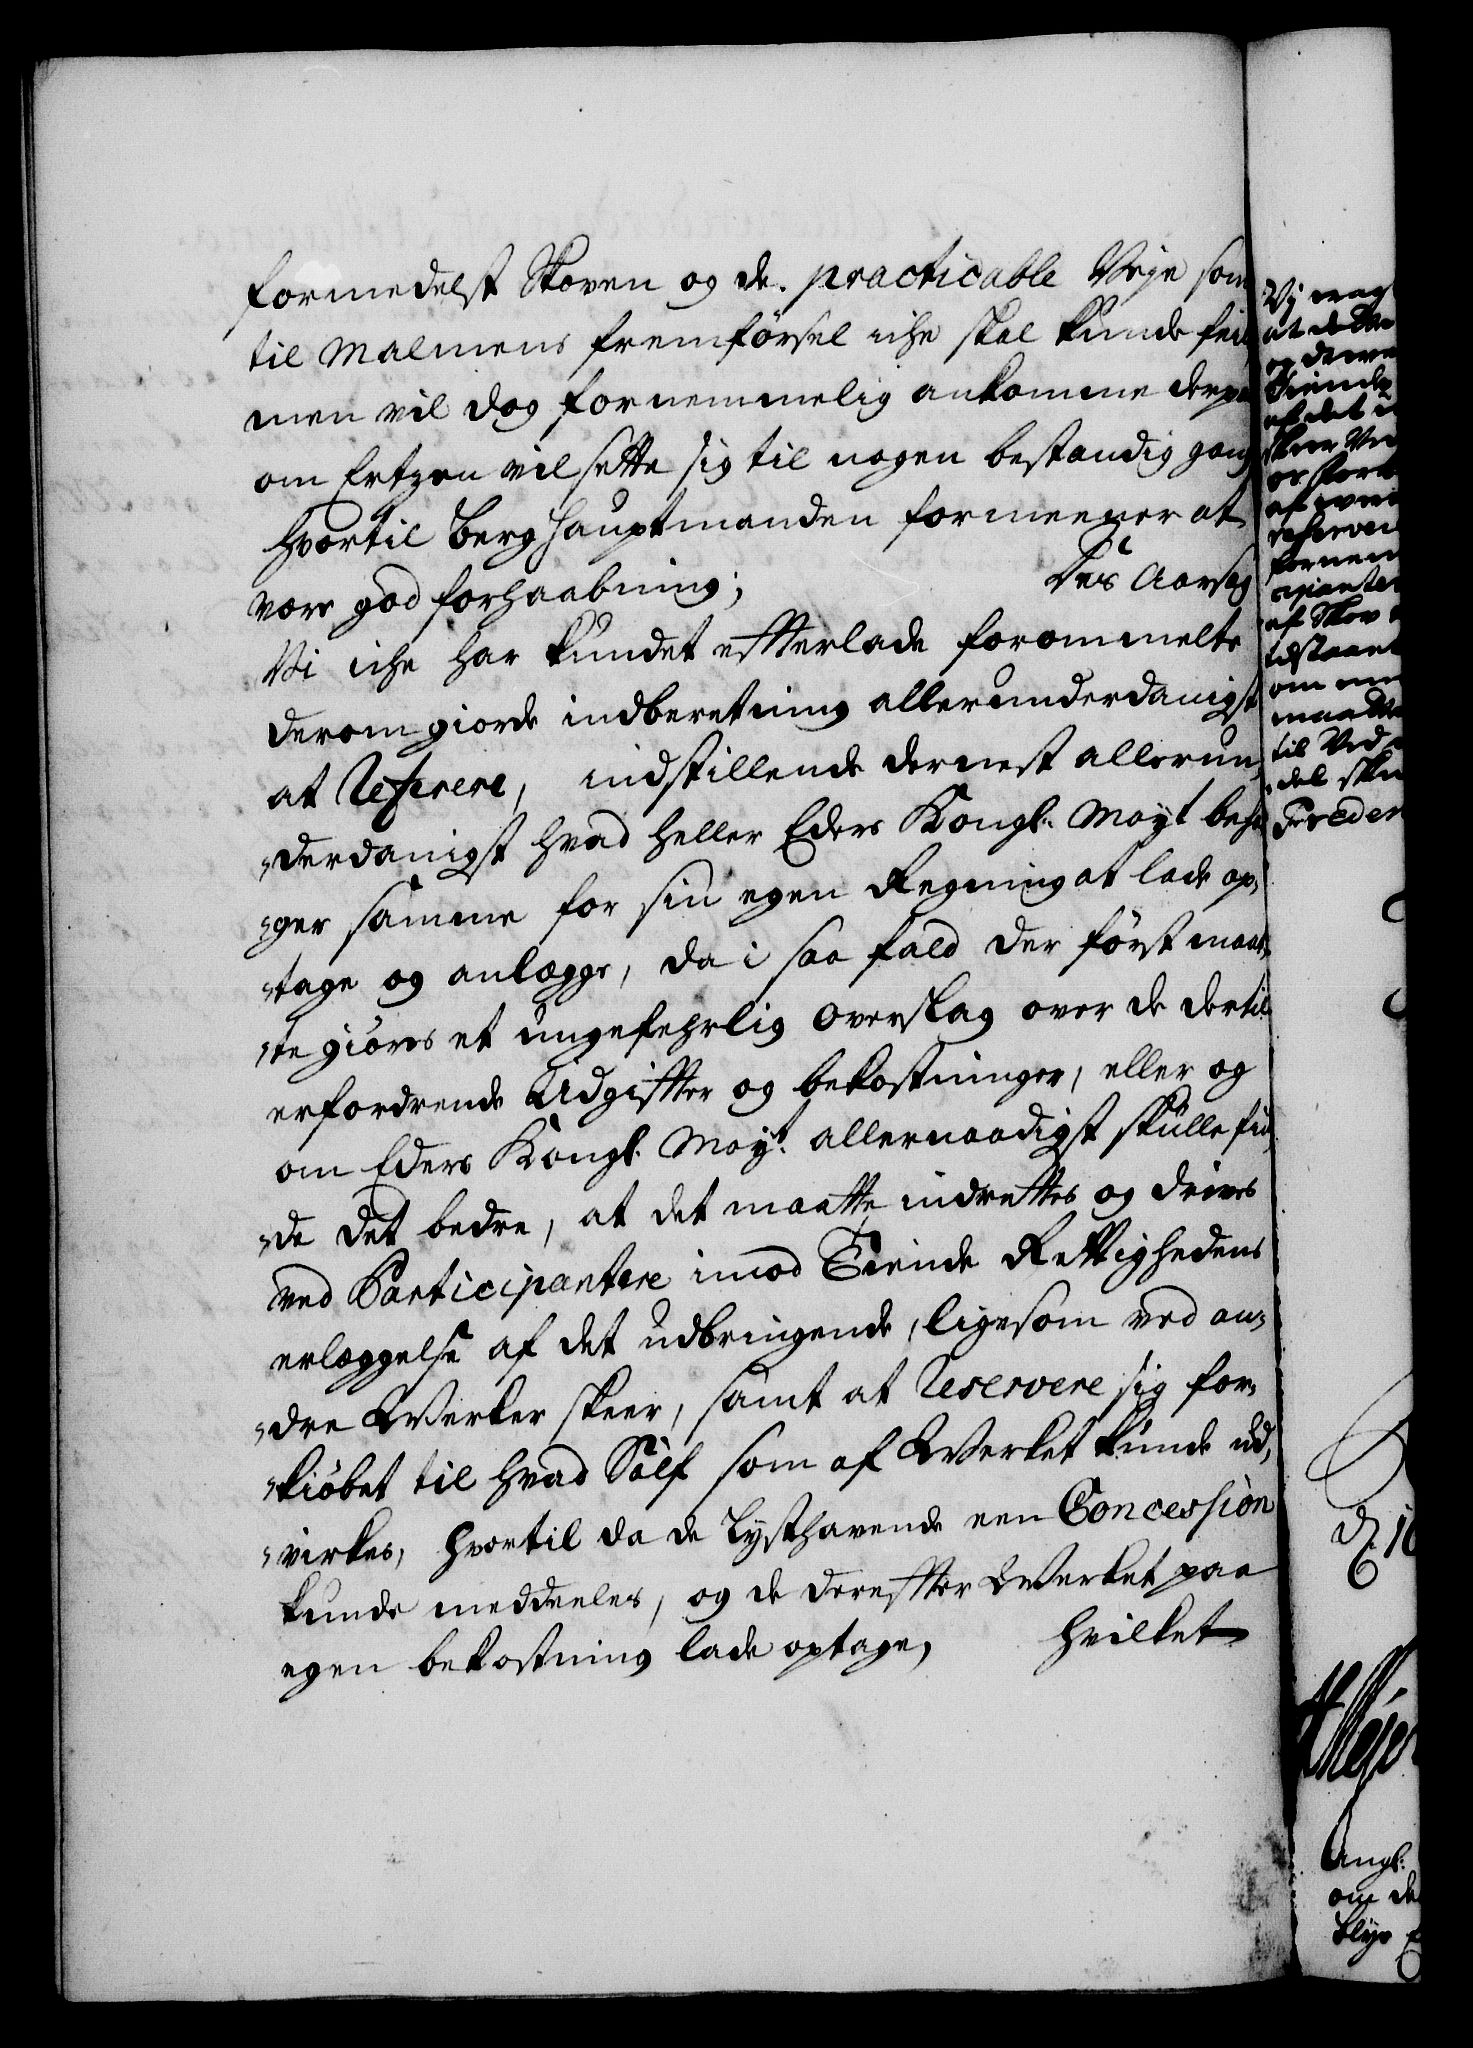 formedelst Skoven og de practicable Veje som
til Malmens fremførsel iche skal kunde feile
men vil dog fornemmelig ankomme derpaa
om Ertzen vil sette sig til nogen bestandig gang
hvortil Berghauptmanden formeener at
være god forhaabning; Des Aarsag
Vi iche har kundet efterlade forommelte
derom giorde indberetning allerunderdanigst
at Referere, indstillende dernest allerun„
„derdanigst hvad heller Eders Kongl. Mayt beha
„ger samme for sin egen Regning at lade op„
„tage og anlægge, da i saa fald der først maat„
„te giøres et ungefehrlig Overslag over de dertil
erfordrende Udgifter og bekostninger, eller og
om Eders Kongl. Mayt. allernaadigst skulle fin„
„de det bedre, at det maatte indrettes og drives
ved Participantere imod Tiende Rettighedens
erlæggelse af det udbringende, ligesom ved an„
„dre Werker skeer, samt at Reservere sig for„
„kiøbet til hvad Sølf som af Werket kunde ud„
„virkes, hvortil da de Lysthavende een Concession
kunde meddeeles, og de derefter Werket paa
egen bekostning lade optage, hvilket
Vj
at
og
Tiende
af det
skeer
af
af Skov
om
til Ved
Freder
Angl:
om de